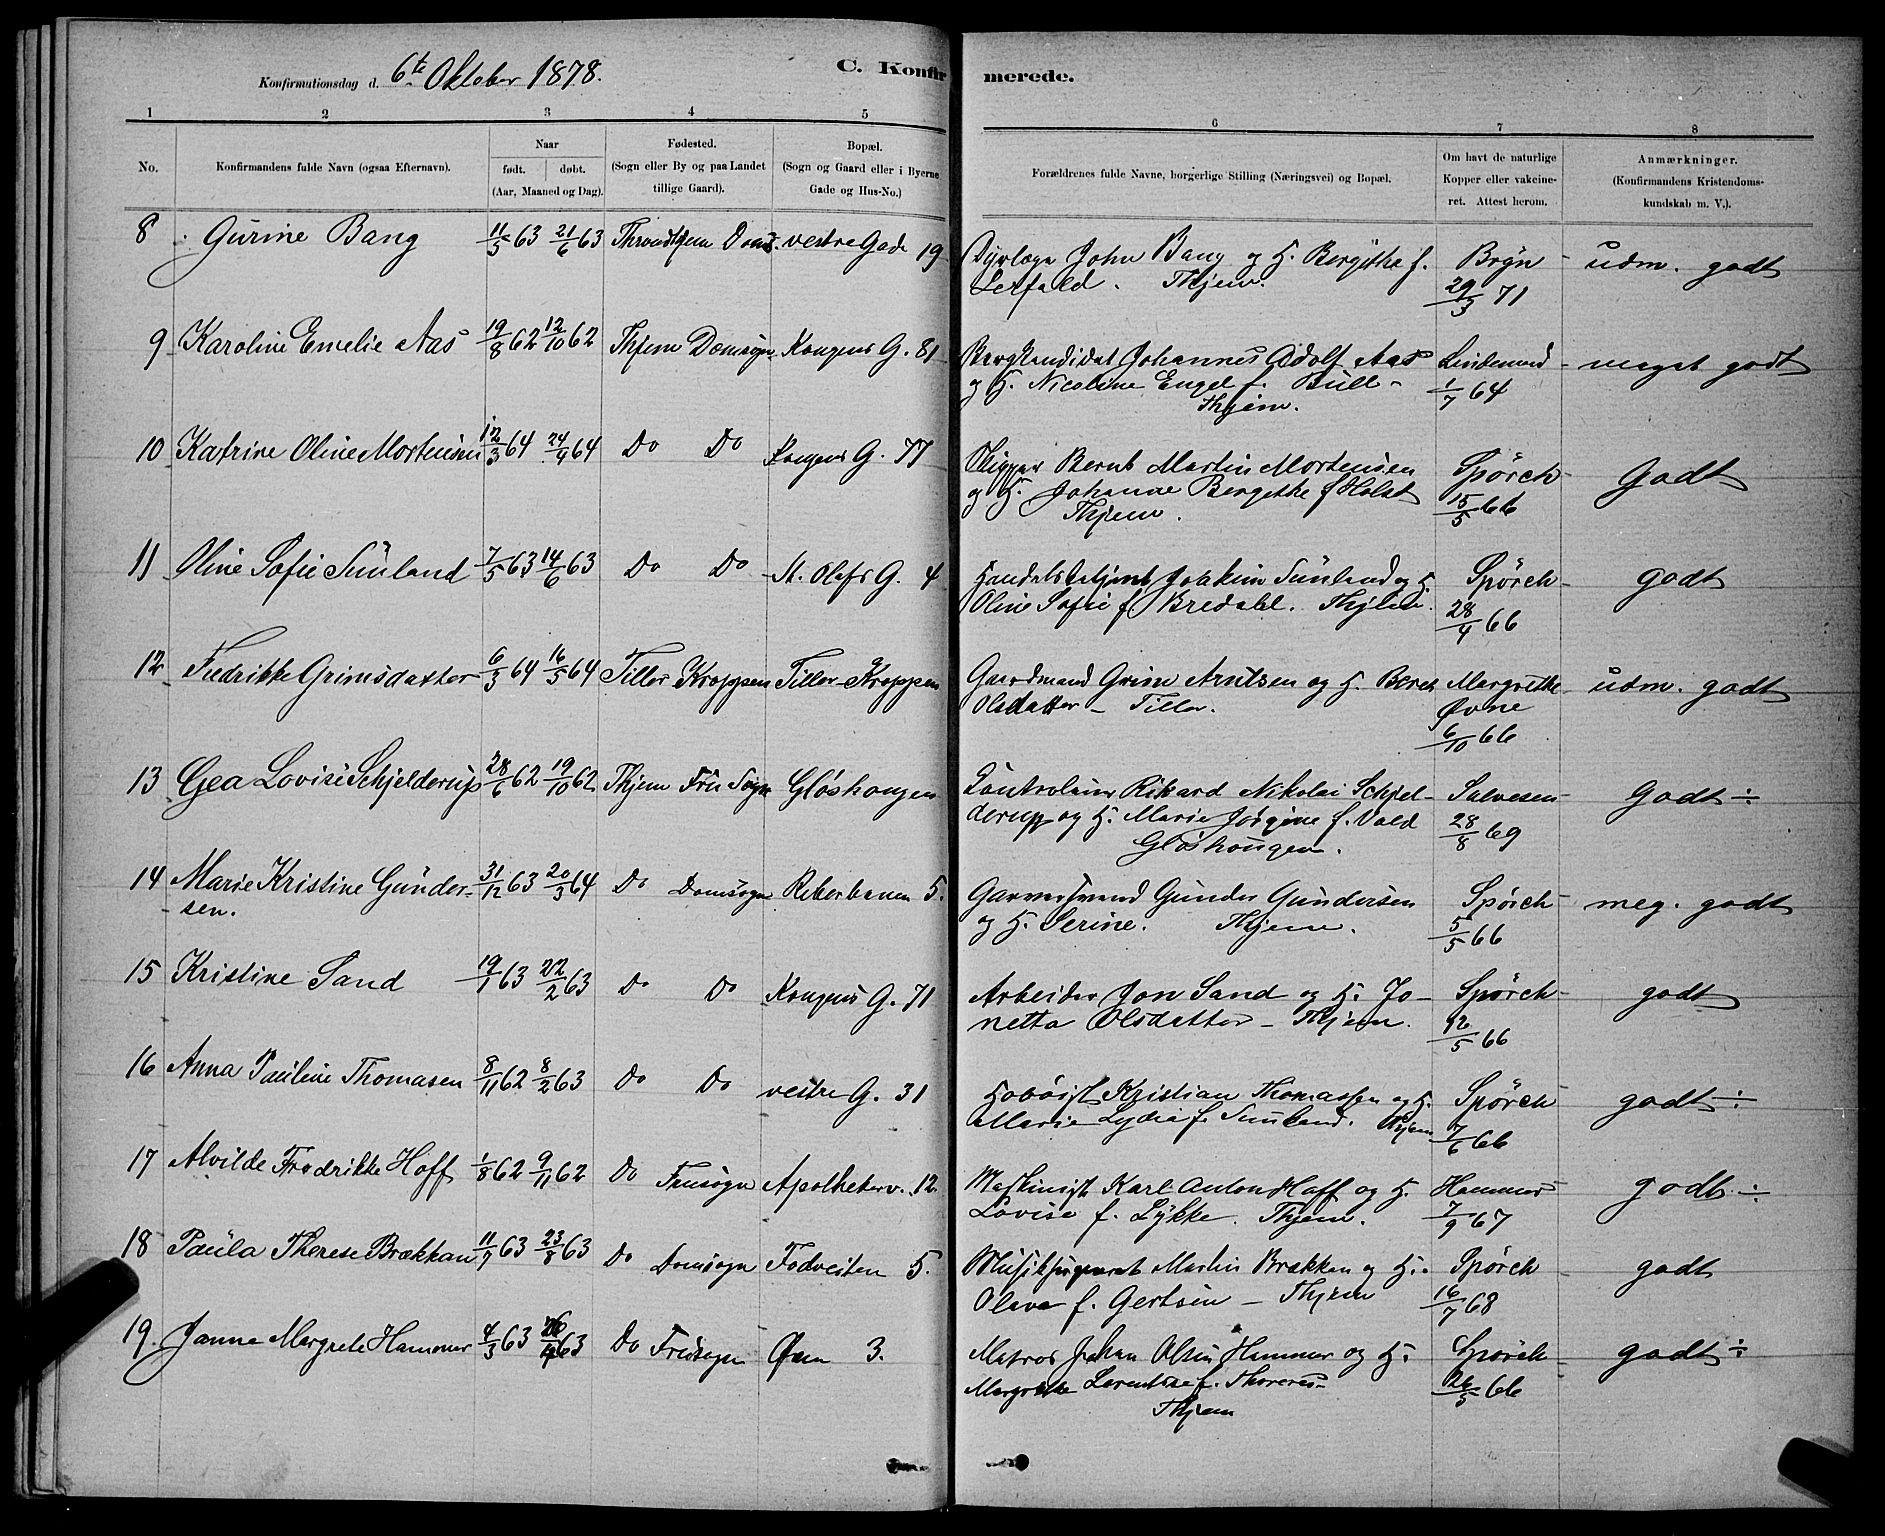 Konfirmationsdag d. 6te Oktober 1878. C. Konfirmerede.
1 2 3 4 5 6 7 8
No. Konfirmandens fulde Navn (ogsaa Efternavn). Naar født. døbt. (Aar, Maaned og Dag). Fødested. (Sogn eller By og paa Landet tillige Gaard). Bopæl. (Sogn og Gaard eller i Byerne Gade og Hus-No.) Forældrenes fulde Navne, borgerlige Stilling (Næringsvei) og Bopæl. Om havt de naturlige Kopper eller vakcineret. Attest herom. Anmærkninger. (Konfirmandens Kristendomskundskab m. V.).
8 Gurine Bang 11/5 63 21/6 63 Throndhjem Doms. vestre Gade 19 Dyrlæge John Bang og H. Bergithe f. Bryn udm. godt
Leifald. Thjem. 29/3 71
9 Karoline Emelie Aas 19/8 62 12/10 62 Thjem Domsogn Kongens G. 81 Bergkandidat Johannes Adolf Aas Lindeman meget godt
og H. Nicoline Engel f. Bull - 1/7 64
Thjem.
10 Katrine Oline Mortensen 12/3 64 24/4 64 Do Do Kongens G. 77 Skipper Bernt Martin Mortensen Spørck Godt
og H. Johanne Bergithe f Holst 15/5 66
Thjem.
11 Oline Sofie Sunland 7/5 63 14/6 63 Do Do St. Olafs G. 4 Handelsbetjent Joakim Sunland og H. Spørck godt
Oline Sofie f. Bredahl. Thjem. 28/4 66
12 Fredrikke Grimsdatter 6/3 64 16/5 64 Tiller Kroppen Tiller Kroppen Gaardmand Grim Arntsen og H. Beret Margrethe udm. godt
Olsdatter - Tiller. Øvne
6/10 66
13 Gea Lovise Schjelderup 28/6 62 19/10 62 Thjem Fru Sogn Gløshaugen Kontrolør Rikard Nikolai Schjel- Salvesen Godt ÷
derup og H. Marie Jørgine f. Vold 28/8 69
Gløshaugen.
14 Marie Kristine Gunder- 31/12 63 20/3 64 Do Domsogn Reberbanen 5. Garversvend Gunder Gundersen Spørck meg. godt
sen. og H. Serine. Thjem. 5/5 66
15 Kristine Sand 19/1 63 22/2 63 Do Do Kongens G. 71 Arbeider Jon Sand og H. Jo- Spørck godt
netta Olsdatter - Thjem. 12/5 66
16 Anna Pauline Thomasen 8/11 62 8/2 63 Do Do vestre G. 31 Hoboist Kristian Thomassen og H. Spørck godt ÷
Marie Lydia f. Sunland. Thjem 7/6 66
17 Alvilde Fredrikke Hoff 1/8 62 9/11 62 Do Frusogn Apothekerv. 12. Maskinist Karl Anton Hoff og H. Hammer godt ÷
Lovise f. Lykke. Thjem. 7/9 67
18 Paula Therese Brækkan 11/7 63 23/8 63 Do Domsogn Fodveiten 5. Martin Brækken og H. Spørck godt
Olava f. Gertsen - Thjem 16/7 68
19. Janna Margrete Hammer 4/3 63 63 Do Frusogn Øen 3. Matros Johan Olsen Hammer og H. Spørck godt ÷
Margrethe Lorentse f. 26/5 66
Thjem